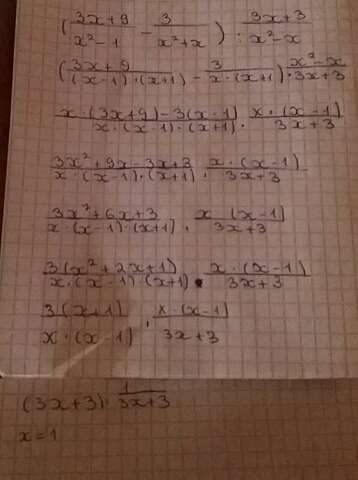 (3x+9/x²-1 - 3/x²+x) : 3x+3/x²-x
(3x+9/(x-1)·(x+1) - 3/x·(x+1))·x²-x/3x+3
x·(3x+9)-3(x-1)/x·(x-1)·(x+1) · x·(x-1)/3x+3
3x²+9x-3x+3/x·(x-1)·(x+1) · x·(x-1)/3x+3
3x²+6x+3/x·(x-1)·(x+1) · x (x-1)/3x+3
3(x²+2x+1)/x·(x-1)·(x+1) · x·(x-1)/3x+3
3(x+1)/x·(x-1) · x·(x-1)/3x+3
(3x+3)·1/3x+3
x=1